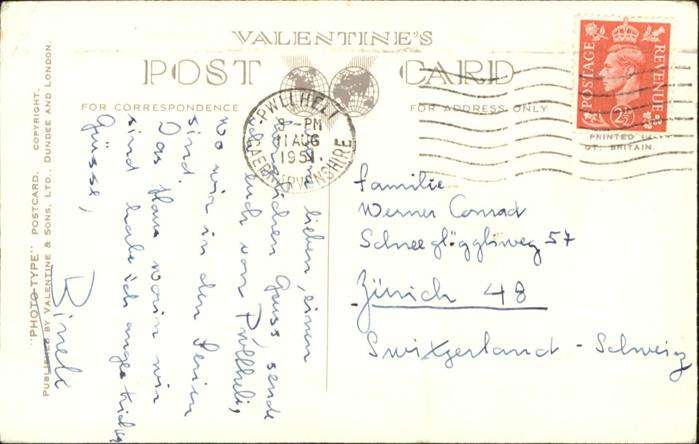 VALENTINE'S
POST CARD
FOR CORRESPONDENCE
FOR ADDRESS ONLY
PWLLHELI
-PM
1 AUG
1951
CAERNARVONSHIRE
POSTAGE
REVENUE
2½
PRINTED IN
GT. BRITAIN.
"PHOTO-TYPE" POSTCARD. COPYRIGHT.
PUBLISHED BY VALENTINE & SONS, LTD., DUNDEE AND LONDON.
lieben, einen
herzlichen Gruss, sende
ich euch von Pwllheli,
wo wir in den Ferien
sind.
Das Haus worin wir
sind habe ich angestrichen
Grüsse,
Familie
Werner Conrad
Schneeglöggliweg 57
Zürich 48
Switzerland - Schweiz